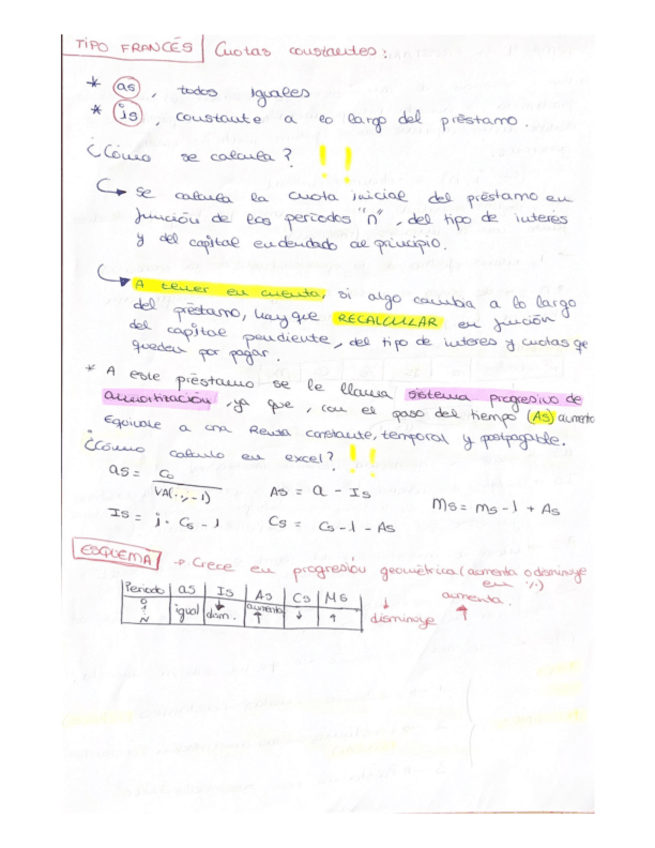 TIPO FRANCÉS Cuotas constantes:
* as, todos iguales
* is, constante a lo largo del préstamo.
¿Cómo se calcula? !!
↳ se calcula la cuota inicial del préstamo en
función de los períodos "n", del tipo de interés
y del capital endeudado al principio.
↳ A tener en cuenta, si algo cambia a lo largo
del préstamo, hay que RECALCULAR en función
del capital pendiente, del tipo de interes y cuotas qe
queden por pagar.
* A este préstamo se le llama sistema progresivo de
amortización, ya que, con el paso del tiempo (As) aumenta
Equivale a una Renta constante, temporal y postpagable.
¿Cómo calculo en excel? !!
as = Co / VA(.,,-1) As = a - Is Ms = Ms-1 + As
Is = i · Cs-1 Cs = Cs-1 - As
ESQUEMA → Crece en progresión geométrica (aumenta o disminuye
en %)
Periodo as Is As Cs Ms ↓ aumenta.
0 1 N igual ↓ dism. aumenta ↑ ↓ ↑ disminuye ↑